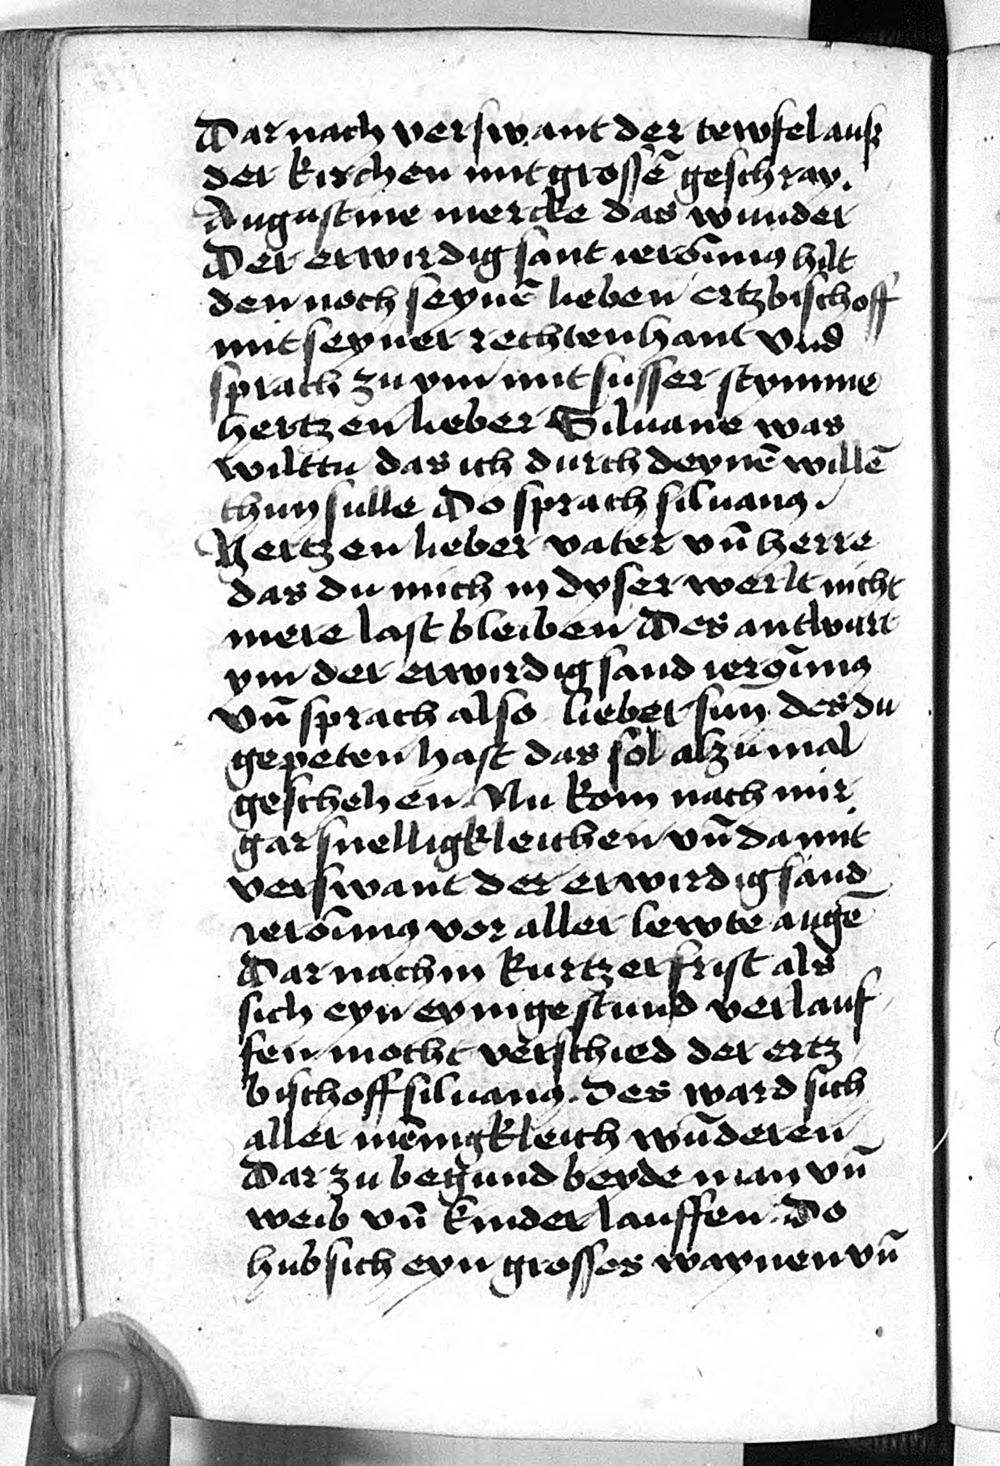 Dar nach verswant der tewfel ausz
der kirchen mit grossē geschray.
Augustine mercke das wunder
Der erwirdig sant ieronimꝰ hilt
den noch seynē lieben ertzbischoff
mit seyner rechten hant vnd
sprach zu ym mit susser stymme
hertzen lieber Siluane was
wilttu das ich durch deynē willē
thun sulle Do sprach siluanꝰ.
Hertzen lieber vater vn̄ herre
das du mich in dyser werlt nicht
mere last bleiben Des antwurt
ym der erwirdig sand ieronimꝰ
vn̄ sprach also lieber sun des du
gepeten hast das sol alzumal
geschehen. Nu kom nach mir
gar snelligkleichen vn̄ da mit
verswant der erwirdig sand
ieronimꝰ vor aller lewte augē
Dar nach in kurtzer frist als
sich eyn eynige stund verlauf
fen mocht verschied der ertz
bischoff siluanꝰ. des ward sich
aller mēnigkleich wūderen
Dar zu begund beyde man vn̄
weib vn̄ kinder lauffen. Do
hub sich eyn grosses waynen vn̄